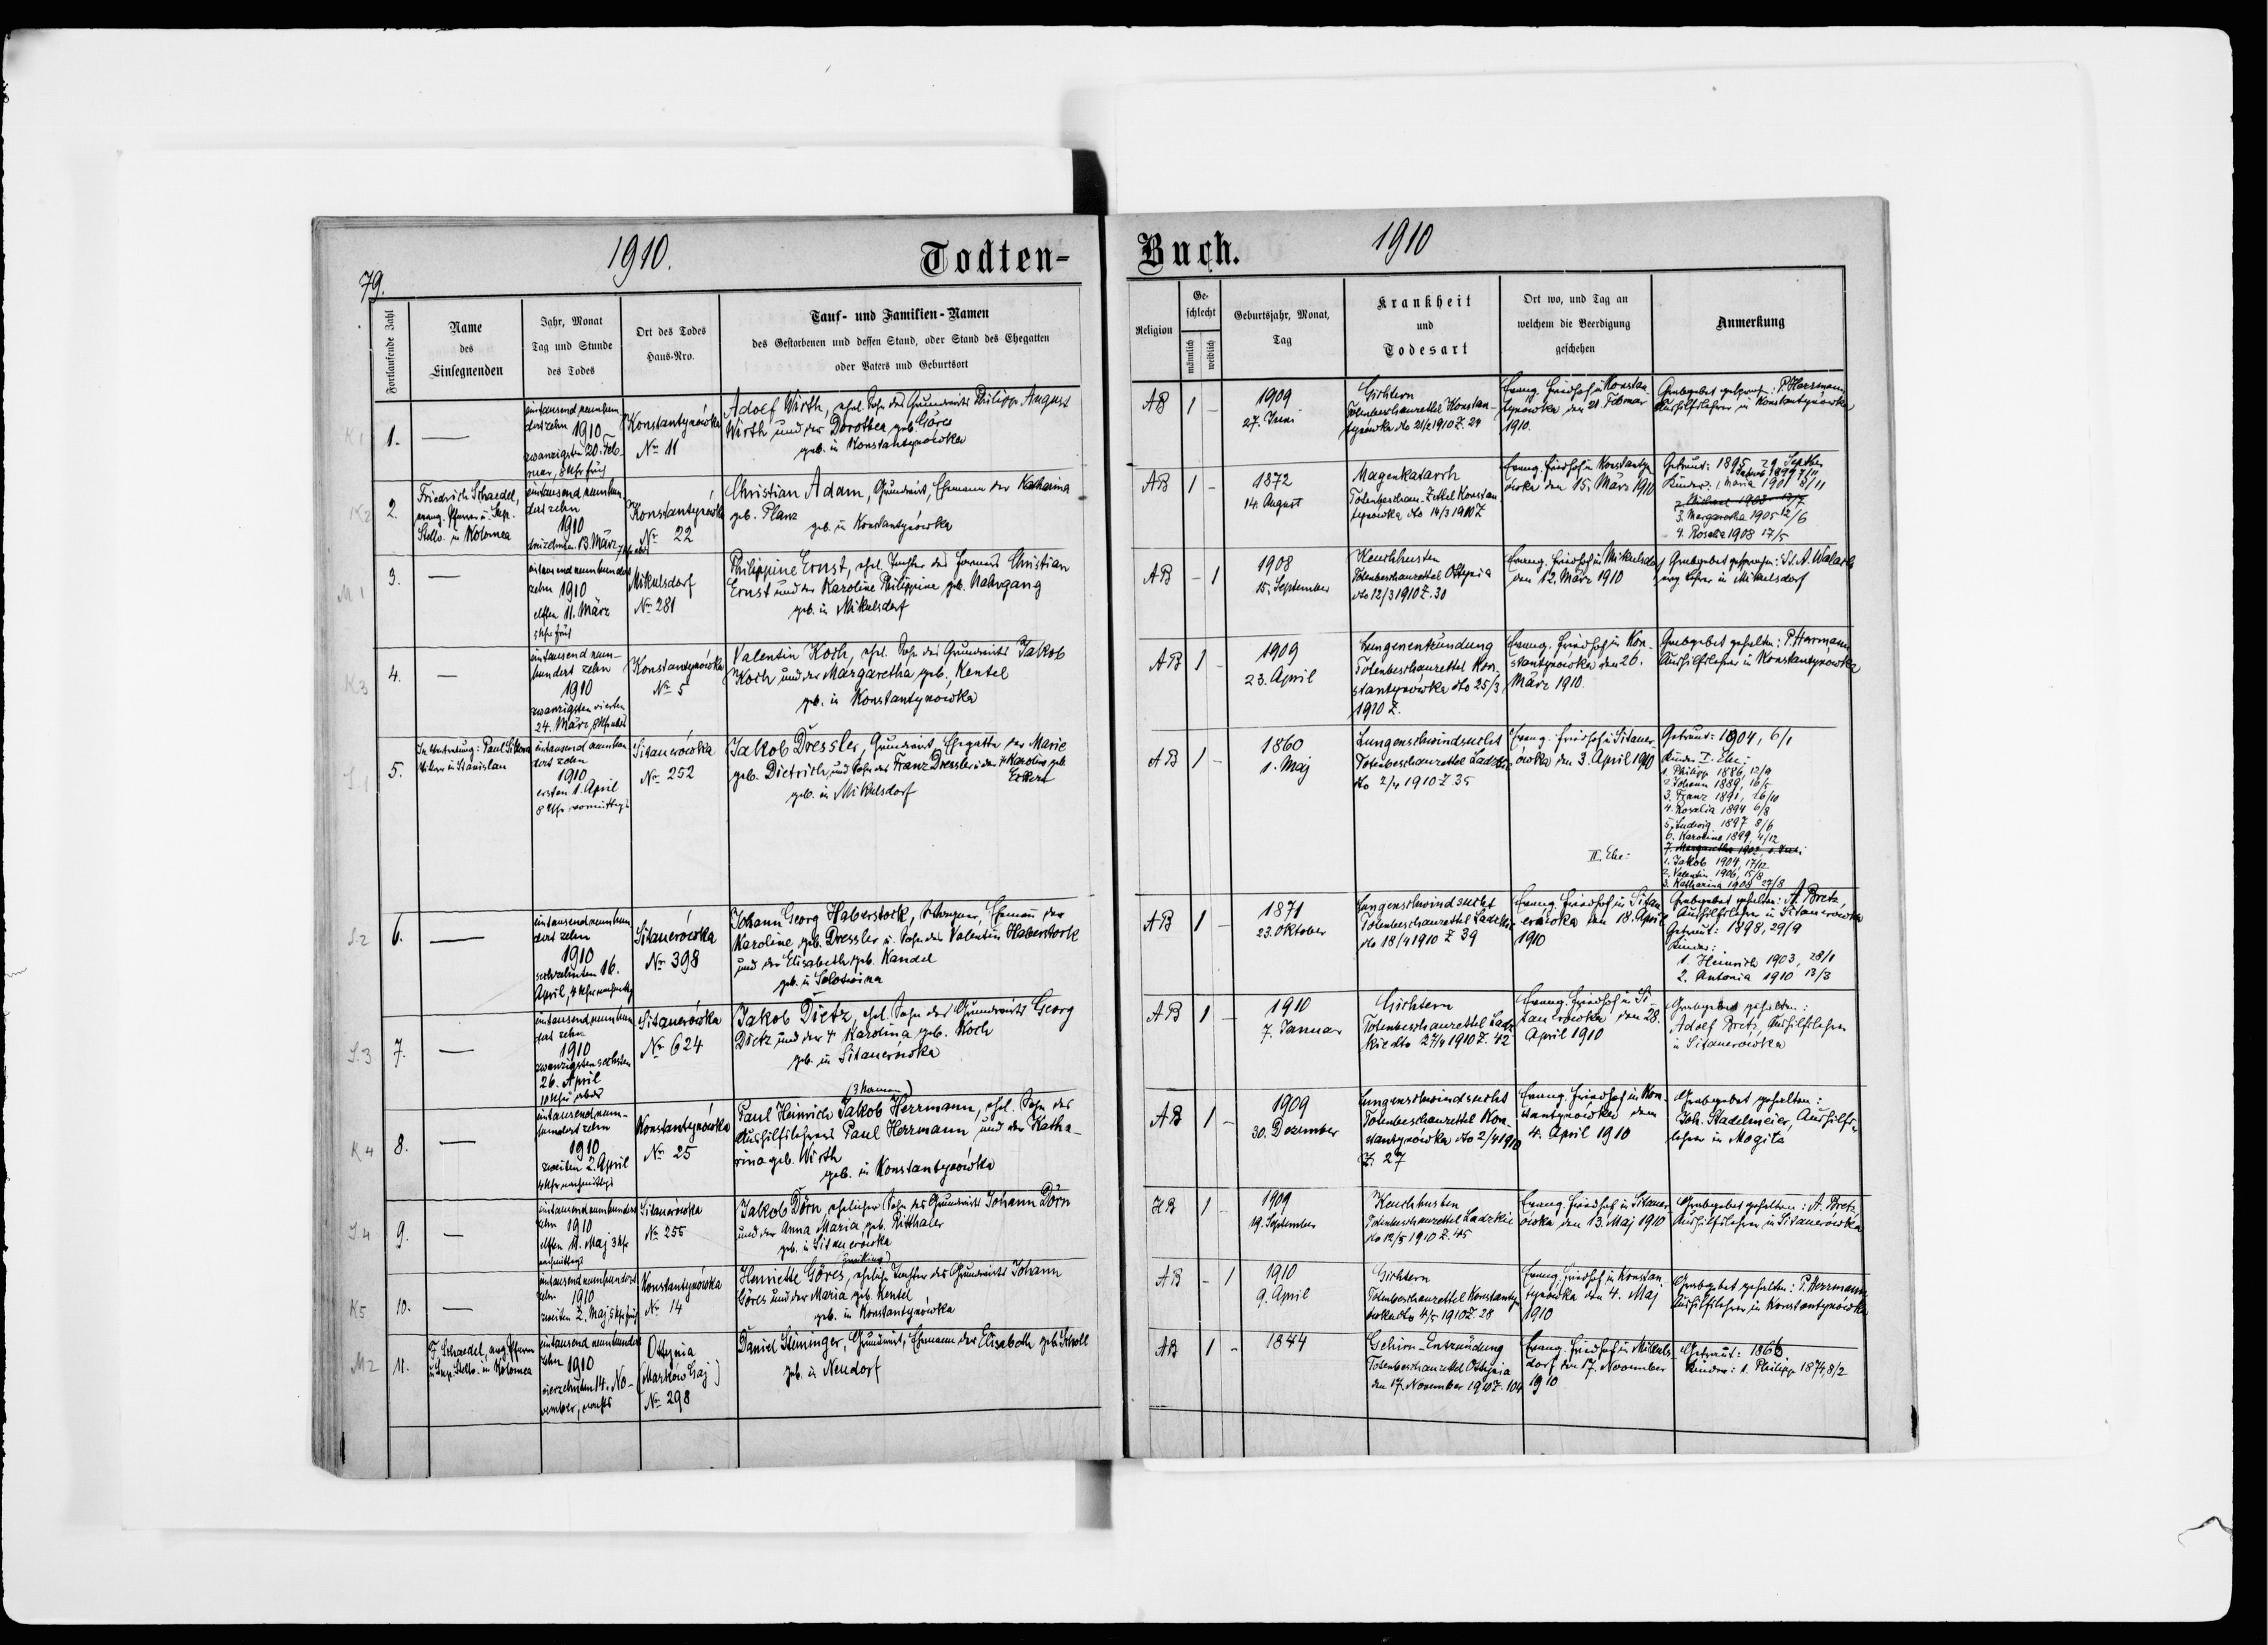 1910.
Todten-
79.
Fortlaufende Zahl
Name
des
Einsegnenden
Jahr, Monat
Tag und Stunde
des Todes
Ort des Todes
Haus-Nro.
Tauf- und Familien-Namen
des Gestorbenen und dessen Stand, oder Stand des Ehegatten
oder Vaters und Geburtsort
K1
1.
eintausend neunhun-
dert zehn 1910
zwanzigsten 20. Feb-
ruar, 8 Uhr früh
Konstantynówka
No 11
Adolf Wirth, ehel. Sohn des Grundwirts Philipp August
Wirth und der Dorothea geb. Göres
geb. in Konstantynówka
K2
2.
Friedrich Schaedel,
evang. Pfarrer u. Sup.
Stellv. in Kolomea
eintausend neunhun
dert zehn
1910
dreizehnten 13. März
Konstantynówka
No 22
Christian Adam, Grundwirt, Ehemann der Katharina
geb. Planz
geb. in Konstantynówka
M1
3.
eintausend neunhundert
zehn 1910
elften 11. März
5 Uhr früh
Mikulsdorf
No 281
Philippine Ernst, ehel. Tochter des Christian
Ernst und der Karoline Philippine geb. Nahrgang
geb. in Mikulsdorf
K3
4.
eintausend neun-
hundert zehn
1910
zwanzigsten vierten
24. März, 8 Uhr abds
Konstantynówka
No 5
Valentin Koch, ehel. Sohn des Grundwirts Jakob
Koch und der Margaretha geb. Kentel
geb. in Konstantynówka
S1
5.
In Vertretung: Paul Sikora
Vikar in Stanislau
eintausend neunhun
dert zehn
1910
ersten 1. April
8 Uhr vormittags
Sitauerówka
No 252
Jakob Dressler, Grundwirt, Ehegatte der Marie
geb. Dietrich, und Sohn des Franz Dressler u. der Karoline geb.
Eckert
geb. in Mikulsdorf
S2
6.
eintausend neunhun
dert zehn
1910
sechzehnten 16.
April, 4 Uhr nachmttg
Sitauerówka
No 398
Johann Georg Haberstock, Wagner, Ehemann der
Karoline geb. Dressler u. Sohn des Valentin Haberstock
und der Elisabeth geb. Kandel
geb. in Solotwina
S3
7.
eintausend neunhun
dert zehn
1910
zwanzigsten sechsten
26. April
10 Uhr abds
Sitauerówka
No 624
Jakob Dietz, ehel. Sohn des Grundwirts Georg
Dietz und der Karolina geb. Koch
geb. in Sitauerówka
K4
8.
eintausend neun-
hundert zehn
1910
zweiten 2. April
4 Uhr nachmittags
Konstantynówka
No 25
(3 Namen)
Paul Heinrich Jakob Herrmann, ehel. Sohn des
Aushilfslehrers Paul Herrmann und der Katha-
rina geb. Wirth
geb. in Konstantynówka
S4
9.
eintausend neunhundert
zehn 1910
elften 11. Maj 3 Uhr
nachmittags
Sitauerówka
No 255
Jakob Dörn, ehelicher Sohn des Grundwirts Johann Dörn
und der Anna Maria geb. Ritthaler
geb. in Sitauerówka
K5
10.
eintausend neunhundert
zehn 1910
zweiten 2. Maj 5 Uhr früh
Konstantynówka
No 14
(Zwilling)
Henriette Göres, eheliche Tochter des Grundwirts Johann
Göres und der Maria geb. Kentel
geb. in Konstantynówka
M2
11.
F. Schaedel, evang. Pfarrer
u. Sup. Stellv. in Kolomea
eintausend neunhundert
zehn 1910
vierzehnten 14. No-
vember, nachts
Ottynia
(Marków Gaj)
No 298
Daniel Steininger, Grundwirt, Ehemann der Elisabeth geb. Scholl
geb. in Neudorf
Buch.
1910
Religion
Ge-
schlecht
männlich
weiblich
Geburtsjahr, Monat,
Tag
Krankheit
und
Todesart
Ort wo, und Tag an
welchem die Beerdigung
geschehen
Anmerkung
AB
1
-
1909
27. Juni
Gichtern
Totenbeschauzettel Konstan-
tynówka dto 21/2 1910 Z. 24
Evang. Friedhof in Konstan-
tynówka, den 21. Februar
1910.
Grabgebet gesprochen: P. Herrmann
Aushilfslehrer in Konstantynówka
AB
1
-
1872
14. August
Magenkatarrh
Totenbeschau-Zettel Konstan
tynówka dto 14/3 1910 Z
Evang. Friedhof in Konstantyn
ówka den 15. März 1910
Getraut: 1895, 29 Septber
Kinder: 1. Maria 1901 3/11
2. Michael 1903
3. Margaretha 1905 12/6
4. Rosalia 1908 17/5
AB
-
1
1908
15. September
Keuchhusten
Totenbeschauzettel Ottynia
dto 12/3 1910 Z. 30
Evang. Friedhof in Mikulsdorf
den 12. März 1910
Grabgebet gesprochen: St. A. Walach
evg. Lehrer in Mikulsdorf
AB
1
-
1909
23. April
Lungenentzündung
Totenbeschauzettel Kon-
stantynówka dto 25/3
1910 Z.
Evang. Friedhof in Kon-
stantynówka den 26.
März 1910.
Grabgebet gehalten: P. Herrmann
Aushilfslehrer in Konstantynówka
AB
1
-
1860
1. Maj
Lungenschwindsucht
Totenbeschauzettel Ladzkie
dto 2/4 1910 Z 35
Evang. Friedhof in Sitauer-
ówka den 3. April 1910
Getraut: 1904, 6/1
Kinder I. Ehe:
1. Philipp 1886, 12/9
2. Johann 1889, 16/5
3. Franz 1891, 16/10
4. Rosalia 1894 6/8
5. Ludwig 1897 8/6
6. Karoline 1899, 4/12
7. Margaretha 1902,
II. Ehe:
1. Jakob 1904, 17/12
2. Valentin 1906, 15/8
3. Katharina 1908 29/8
AB
1
-
1871
23. Oktober
Lungenschwindsucht
Totenbeschauzettel Ladzkie
dto 18/4 1910 Z 39
Evang. Friedhof in Sitau-
erówka den 18. April
1910
Grabgebet gehalten: A. Bretz,
Aushilfslehrer in Sitauerówka
Getraut: 1898, 29/9
Kinder:
1. Heinrich 1903, 28/1
2. Antonia 1910 13/3
AB
1
-
1910
7. Januar
Gichtern
Totenbeschauzettel Ladz-
kie dto 27/4 1910 Z. 42
Evang. Friedhof in Si-
tauerówka den 28.
April 1910
Grabgebet gehalten:
Adolf Bretz, Aushilfslehrer
in Sitauerówka
AB
1
-
1909
30. Dezember
Lungenschwindsucht
Totenbeschauzettel Kon-
stantynówka dto 2/4 1910
Z. 27
Evang. Friedhof in Kon-
stantynówka dem
4. April 1910
Grabgebet gehalten:
Joh. Stadelmeier, Aushilfs-
lehrer in Mogiła
HB
1
-
1909
19. September
Keuchhusten
Totenbeschauzettel Ladzkie
dto 12/5 1910 Z. 45
Evang. Friedhof in Sitauer-
ówka den 13. Maj 1910
Grabgebet gehalten: A. Bretz
Aushilfslehrer in Sitauerówka
AB
-
1
1910
9. April
Gichtern
Totenbeschauzettel Konstantyn
ówka dto 4/5 1910 Z. 28
Evang. Friedhof in Konstan-
tynówka den 4. Maj
1910
Grabgebet gehalten: P. Herrmann
Aushilfslehrer in Konstantynówka
AB
1
-
1844
Gehirn-Entzündung
Totenbeschauzettel Ottynia
den 17. November 1910 Z. 104
Evang. Friedhof in Mikuls-
dorf den 17. November
1910
Getraut: 1866
Kinder: 1. Philipp 1874, 8/2